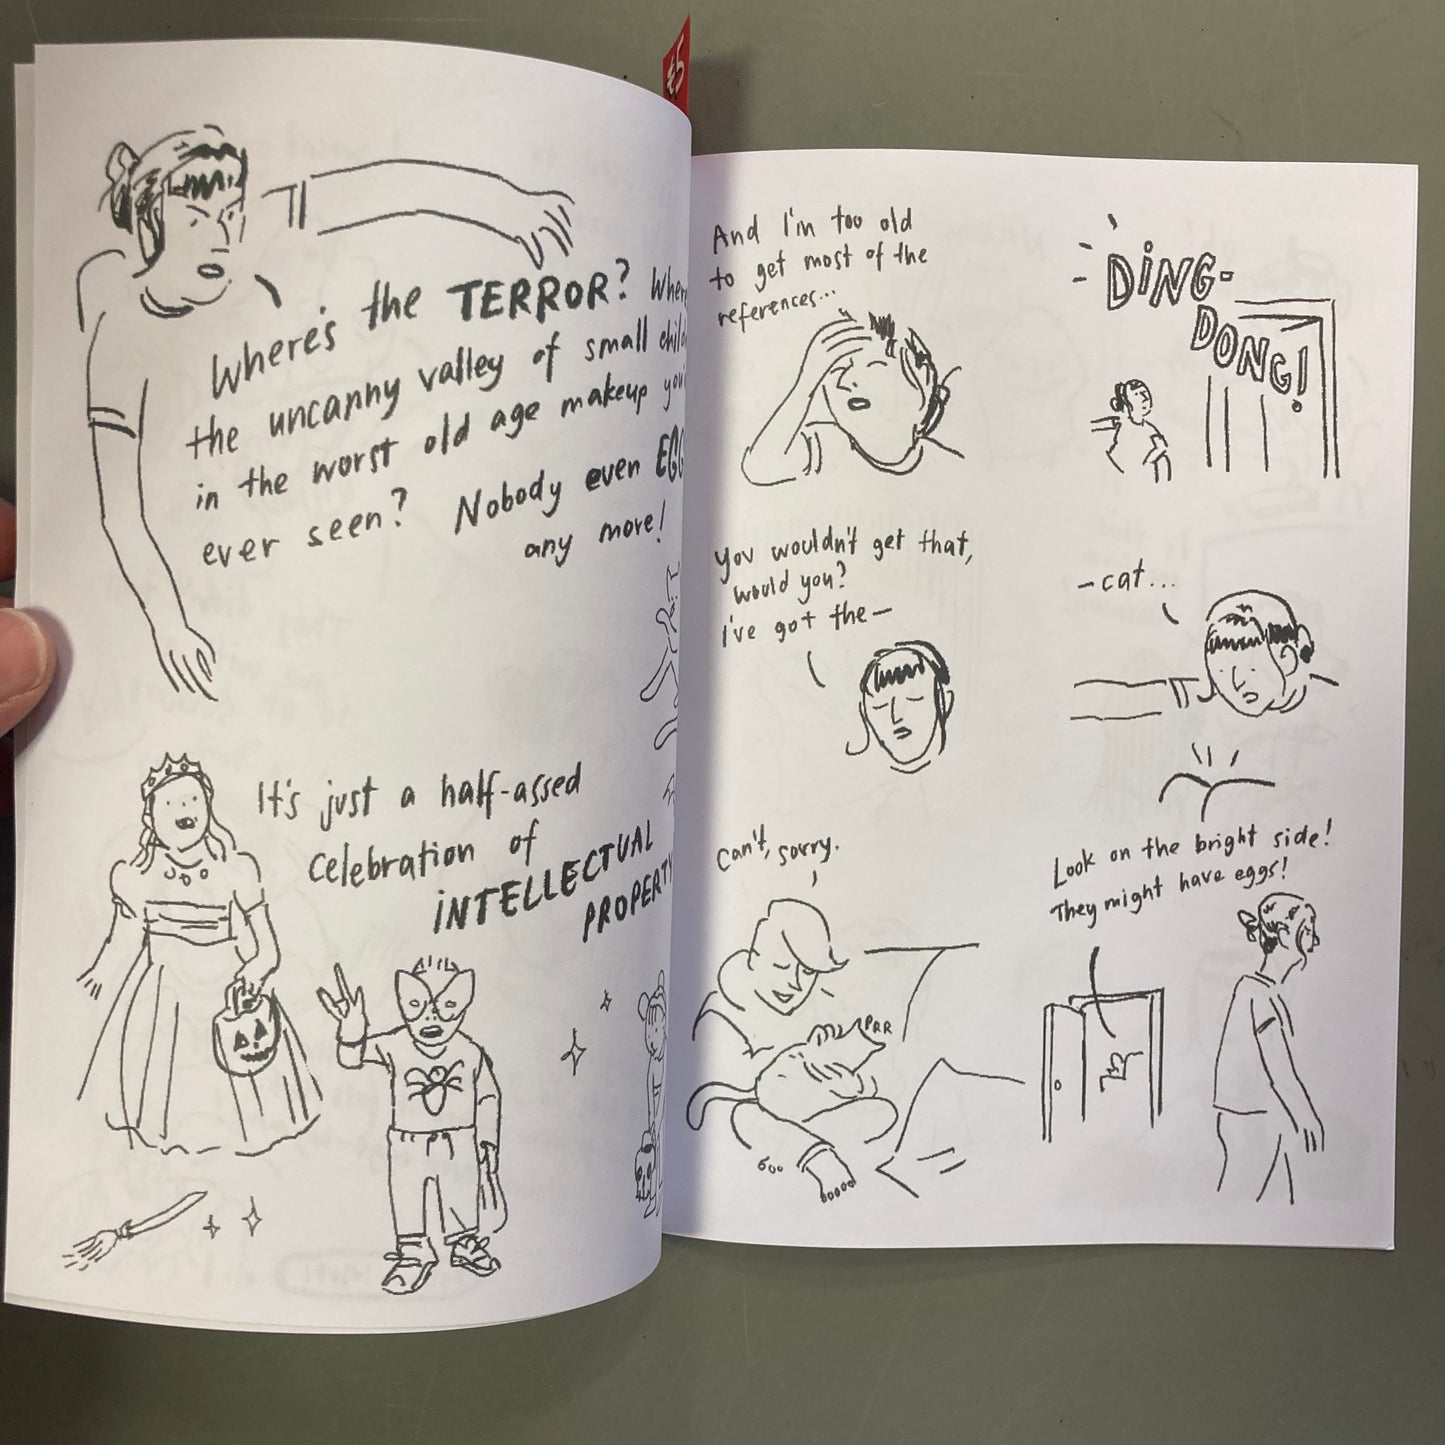 £5
Where's the TERROR?
the uncanny valley of small
in the worst old age makeup
ever seen? Nobody even
any more!
It's just a half-assed
celebration of
INTELLECTUAL
PROPERTY
And I'm too old
to get most of the
references...
DING-
DONG!
You wouldn't get that,
would you?
I've got the—
—cat...
Can't, sorry.
PRR
Look on the bright side!
They might have eggs!